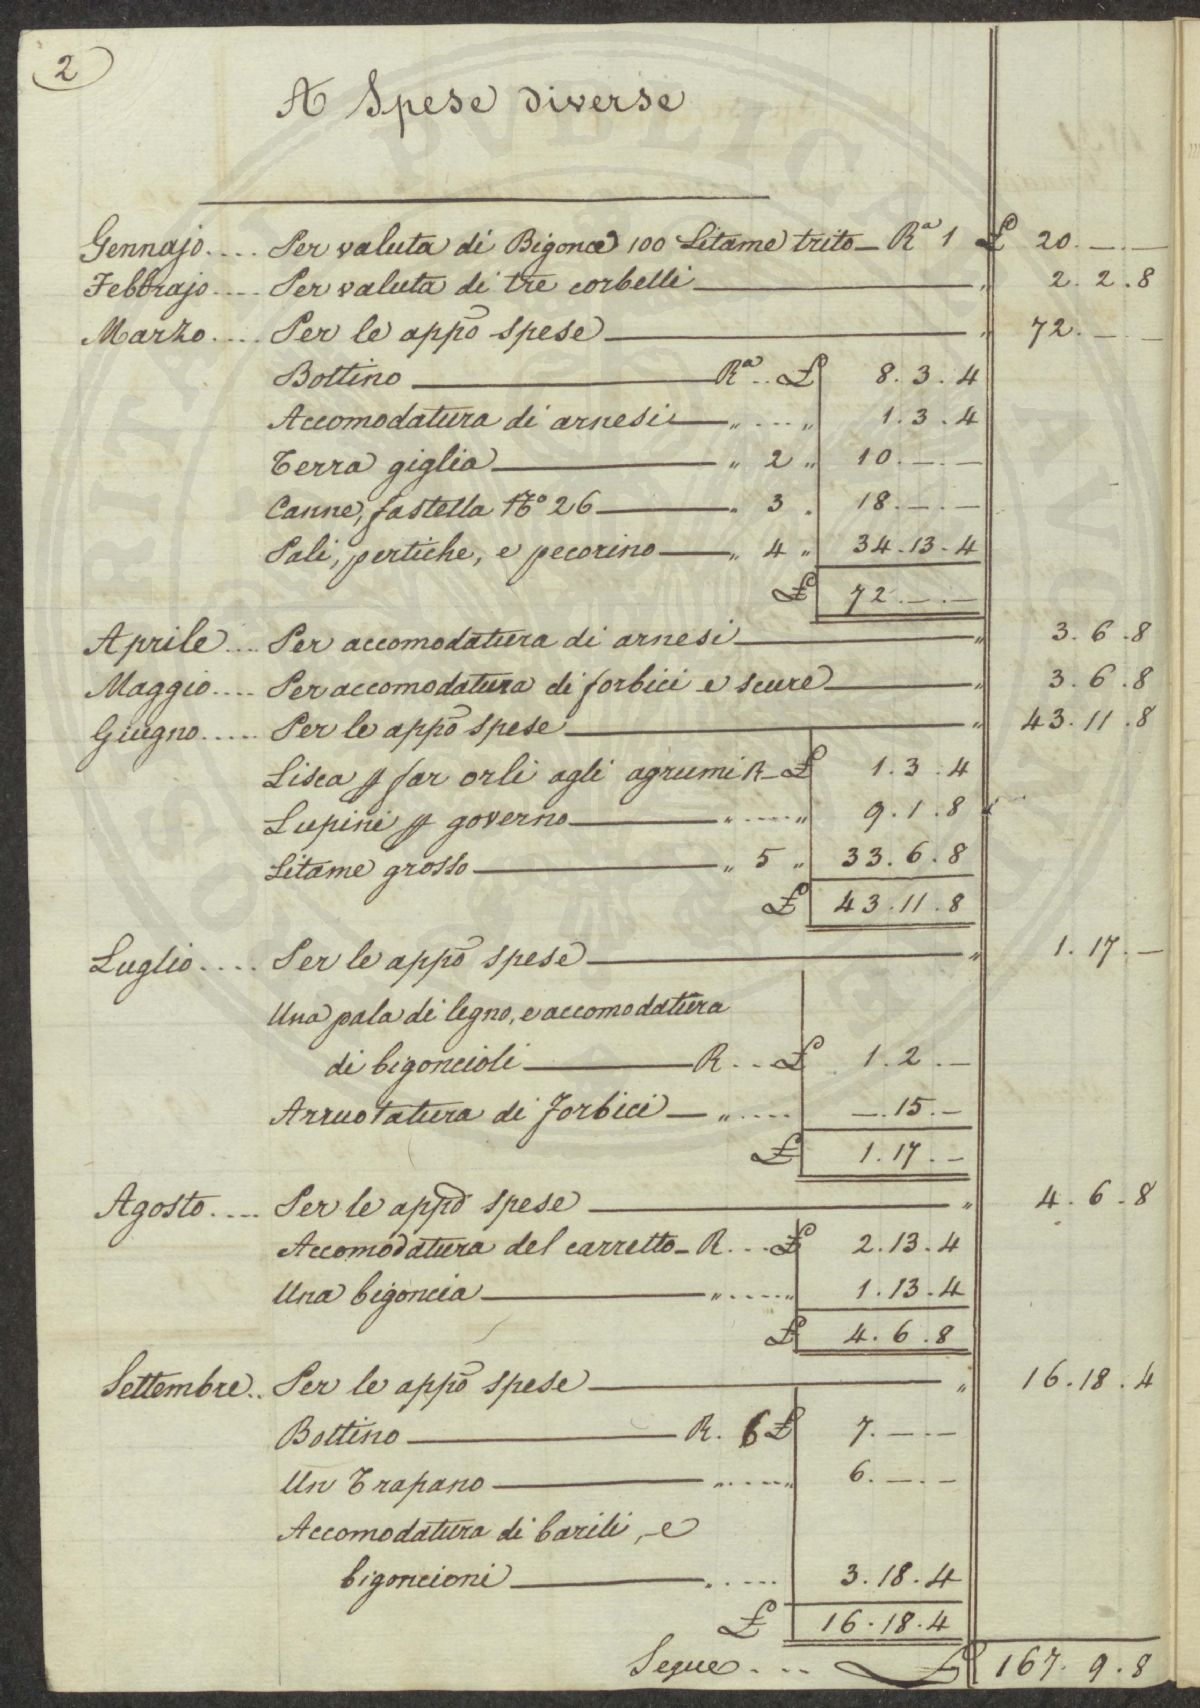 2
A Spese diverse
Gennajo.... Per valuta di Bigonce 100 Letame trito — Rª 1 £ 20. — . —
Febbrajo.... Per valuta di tre corbelli — " 2. 2. 8
Marzo.... Per le appō spese — " 72. — . —
Bottino — Rª .. £ 8. 3. 4
Accomodatura di arnesi — " .... " 1. 3. 4
Terra giglia — " 2 " 10. — . —
Canne, fastella Nº 26 — " 3 . 18. — . —
Pali, pertiche, e pecorino — " 4 " 34. 13. 4
£ 72. — . —
Aprile.... Per accomodatura di arnesi — " 3. 6. 8
Maggio.... Per accomodatura di forbici e scure — " 3. 6. 8
Giugno..... Per le appō spese — " 43. 11. 8
Lisca p far orli agli agrumi R — £ 1. 3. 4
Lupini p governo — " ..... " 9. 1. 8
Letame grosso — " 5 " 33. 6. 8
£ 43. 11. 8
Luglio.... Per le appō spese — " 1. 17. —
Una pala di legno, e accomodatura
di bigoncioli — R ... £ 1. 2. —
Arruotatura di forbici — " ..... — . 15. —
£ 1. 17. —
Agosto.... Per le appō spese — " 4. 6. 8
Accomodatura del carretto — R.... £ 2. 13. 4
Una bigoncia — " ..... " 1. 13. 4
£ 4. 6. 8
Settembre.. Per le appō spese — " 16. 18. 4
Bottino — R. 6 £ 7. — . —
Un Trapano — " ..... " 6. — . —
Accomodatura di barili, e
bigoncioni — " .... 3. 18. 4
£ 16. 18. 4
Segue.... £ 167. 9. 8